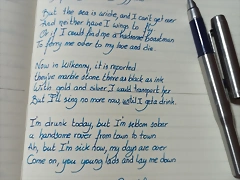 But the sea is wide, and I can't get over
And neither have I wings to fly
Or if I could find me a handsome boatman
To ferry me over to my love and die.
Now in Kilkenny, it is reported
they've marble stone there as black as ink
With gold and silver I would transport her
But I'll sing no more now, until I get a drink.
I'm drunk today, but I'm seldom sober
a handsome rover from town to town
Ah, but I'm sick now, my days are over
Come on, you young lads and lay me down